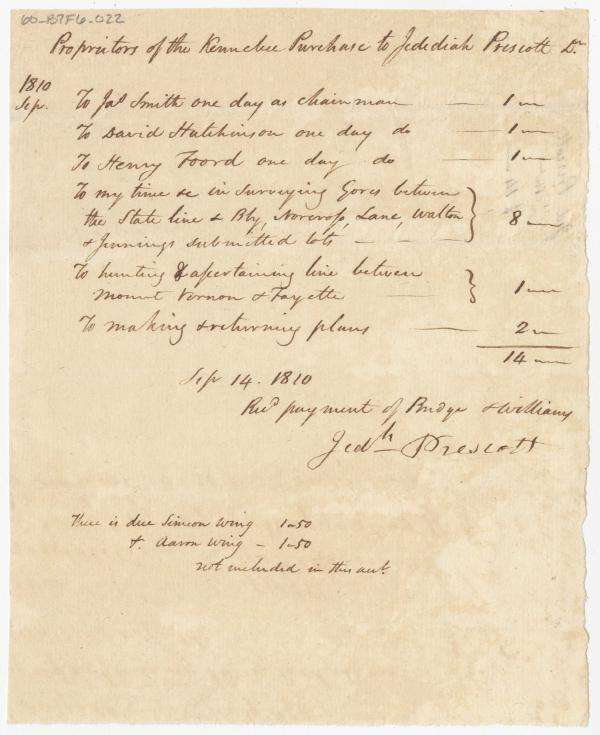 60-B7F6-022
Proprietors of the Kennebec Purchase to Jedediah Prescott Dr.
1810
Sep. To Jas Smith one day as chainman — 1 —
To David Hutchinson one day do — 1 —
To Henry Foord one day do — 1 —
To my time &c in surveying Gores between
the State line & Norcross, Lane, Walton
& Jennings submitted lots — 8 —
To hunting & ascertaining line between
Mount Vernon & Fayette — 1 —
To making & returning plans — 2 —
14 —
Sep 14. 1810
Recd payment of Bridge & Williams
Jedh Prescott
There is due Simeon Wing 1-50
&. Aaron Wing - 1-50
not included in this act.